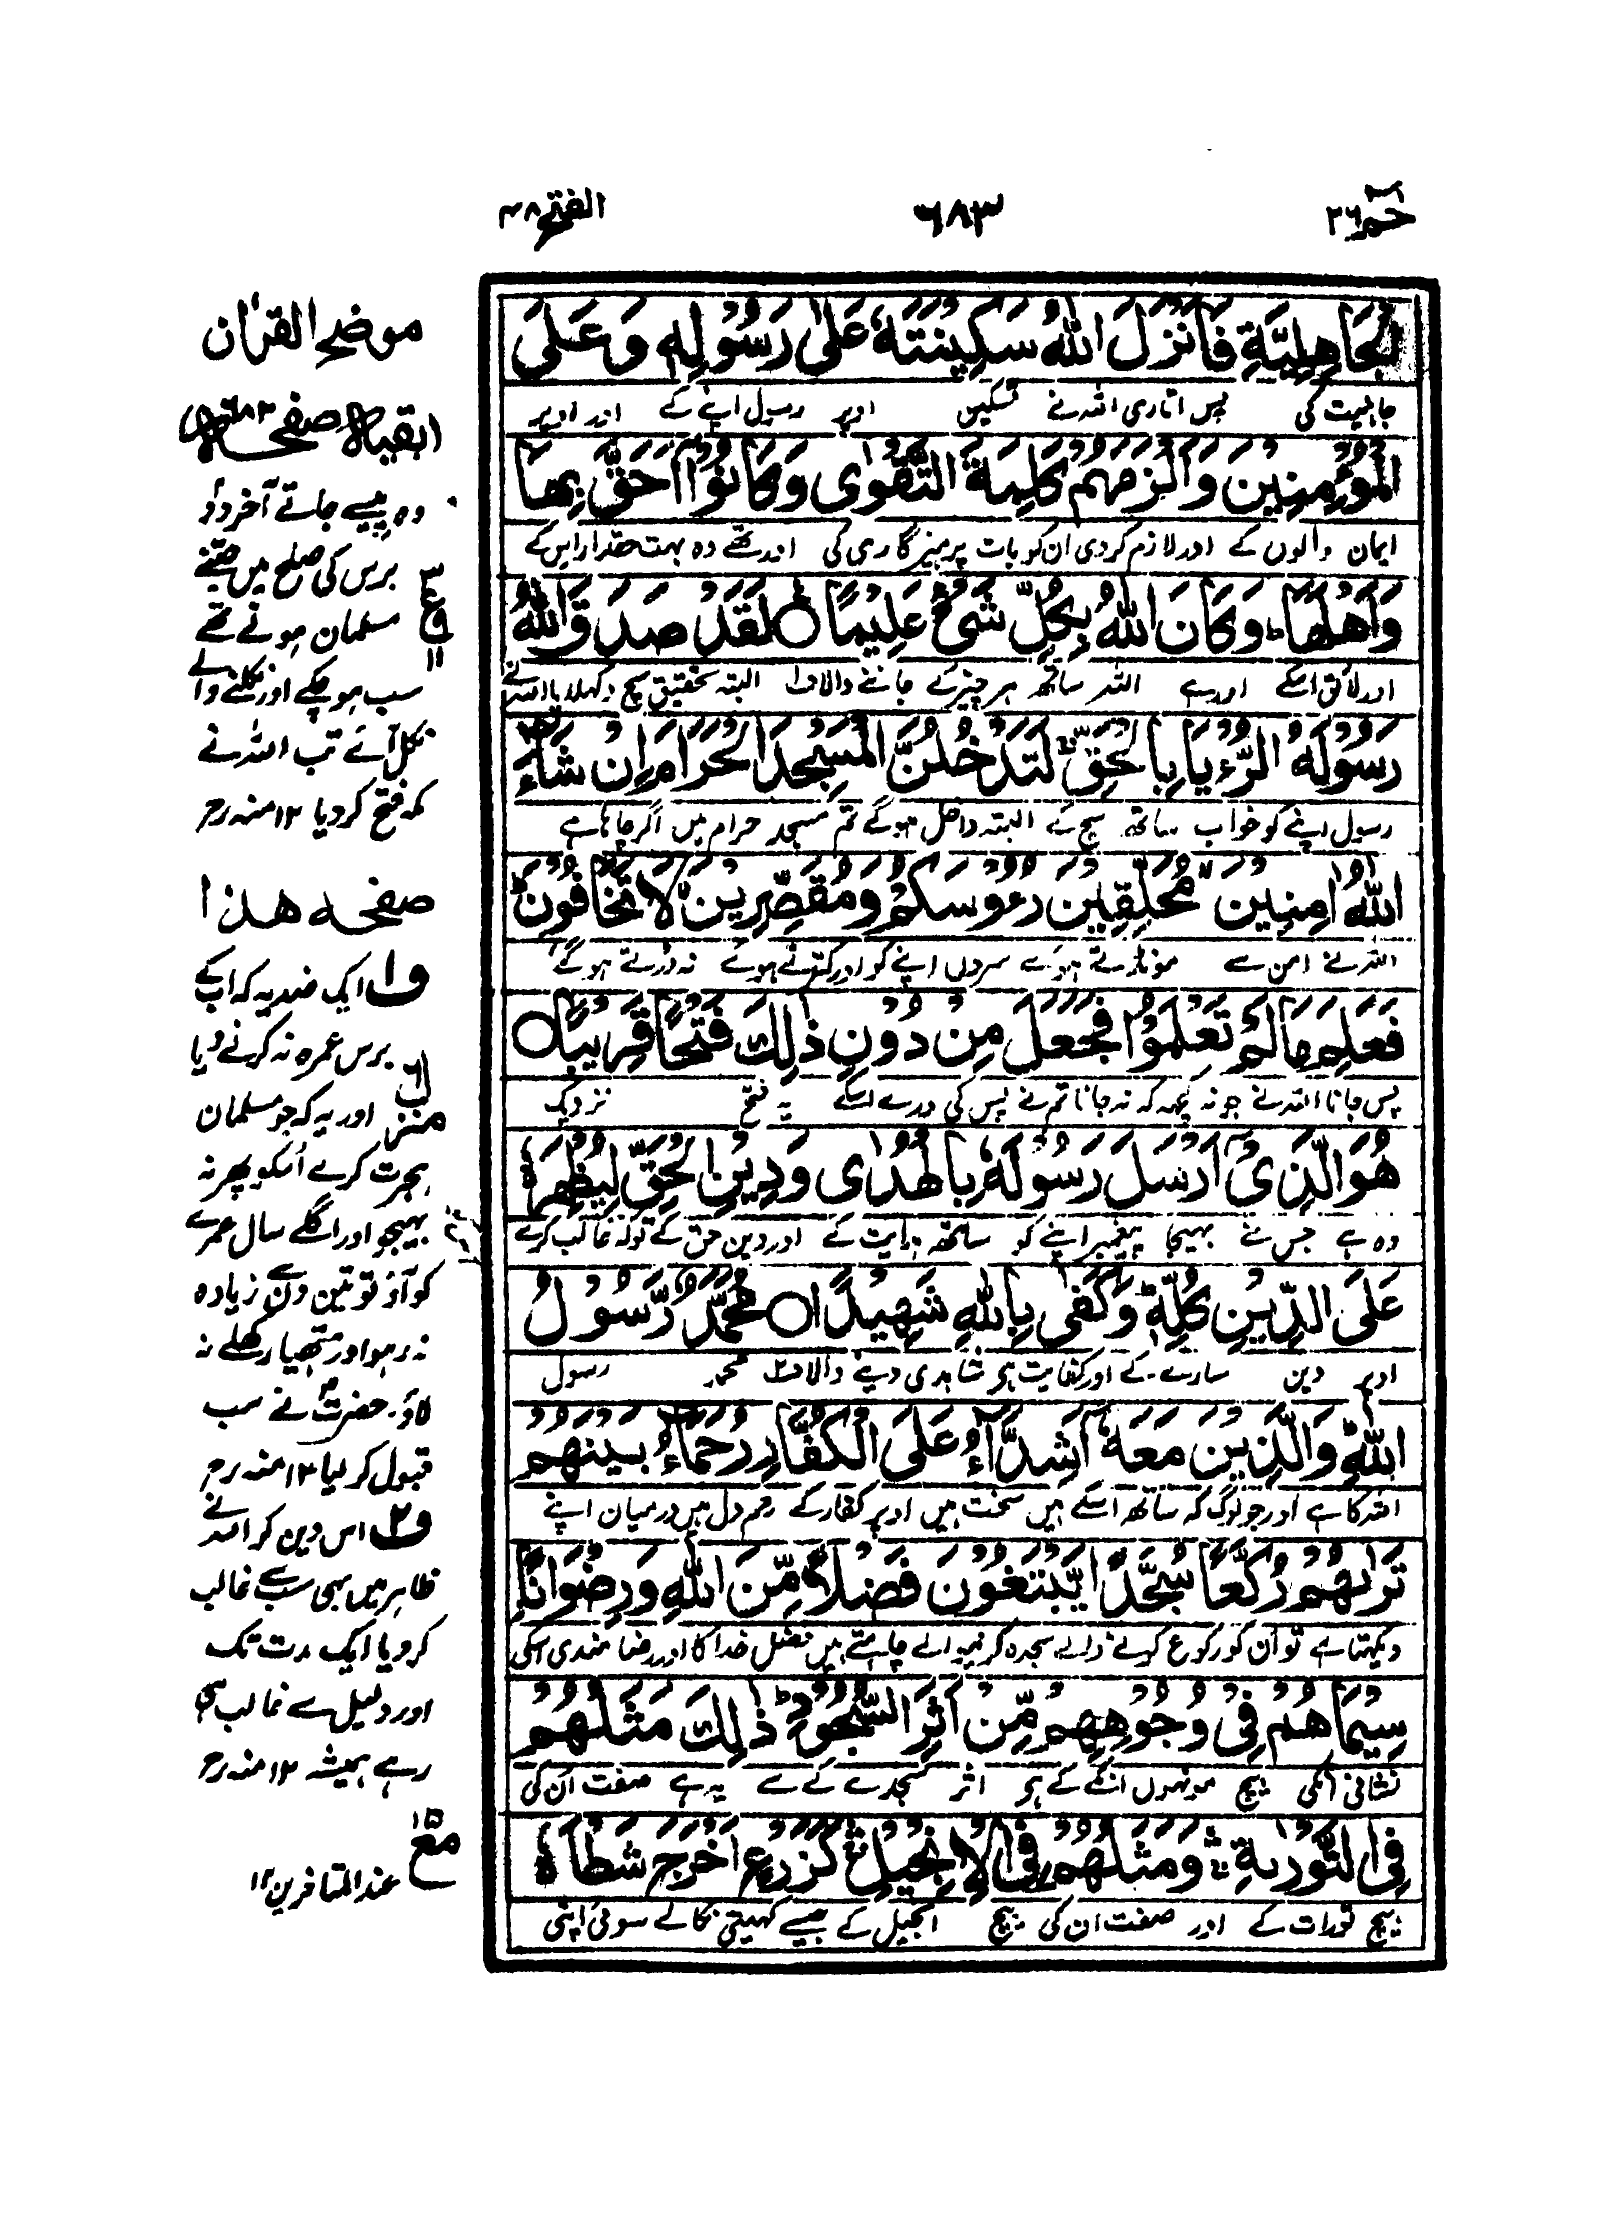 حٰمٓ ٢٦
٦٨٣
الفتح ٤٨
الْجَاهِلِيَّةِ فَاَنْزَلَ اللّٰهُ سَكِيْنَتَهٗ عَلٰى رَسُوْلِهٖ وَعَلَى
جاہلیت کی پس اتاری اللہ نے تسکین اوپر رسول اپنے کے اور اوپر
الْمُؤْمِنِيْنَ وَاَلْزَمَهُمْ كَلِمَةَ التَّقْوٰى وَكَانُوْٓا اَحَقَّ بِهَا
ایمان والوں کے اور لازم کر دی ان کو بات پرہیزگاری کی اور تھے وہ بہت حقدار اس کے
وَاَهْلَهَا ؕ وَكَانَ اللّٰهُ بِكُلِّ شَىْءٍ عَلِيْمًا ○ لَقَدْ صَدَقَ اللّٰهُ
اور لائق اسکے اور ہے اللہ ساتھ ہر چیز کے جاننے والا البتہ تحقیق سچ دکھلایا اللہ نے
رَسُوْلَهُ الرُّءْيَا بِالْحَقِّ ۚ لَتَدْخُلُنَّ الْمَسْجِدَ الْحَرَامَ اِنْ شَآءَ
رسول اپنے کو خواب ساتھ سچ کے البتہ داخل ہو گے تم مسجد حرام میں اگر چاہا ہے
اللّٰهُ اٰمِنِيْنَ ۙ مُحَلِّقِيْنَ رُءُوْسَكُمْ وَمُقَصِّرِيْنَ ۙ لَا تَخَافُوْنَ ؕ
اللہ نے امن سے مونڈتے ہوئے سروں اپنے کو اور کترتے ہوئے نہ ڈرتے ہو گے
فَعَلِمَ مَا لَمْ تَعْلَمُوْا فَجَعَلَ مِنْ دُوْنِ ذٰلِكَ فَتْحًا قَرِيْبًا ○
پس جانا اللہ نے جو نہ کچھ کہ نہ جانا تم نے پس کی ورے اسکے یہ فتح نزدیک
هُوَ الَّذِىْٓ اَرْسَلَ رَسُوْلَهٗ بِالْهُدٰى وَدِيْنِ الْحَقِّ لِيُظْهِرَهٗ
وہ ہے جس نے بھیجا پیغمبر اپنے کو ساتھ ہدایت کے اور دین حق کے تو کہ غالب کرے
عَلَى الدِّيْنِ كُلِّهٖ ؕ وَكَفٰى بِاللّٰهِ شَهِيْدًا ○ مُحَمَّدٌ رَّسُوْلُ
اوپر دین سارے کے اور کفایت ہے شاہدی دینے والا محمد رسول
اللّٰهِ ؕ وَالَّذِيْنَ مَعَهٗٓ اَشِدَّآءُ عَلَى الْكُفَّارِ رُحَمَآءُ بَيْنَهُمْ
اللہ کا ہے اور جو لوگ کہ ساتھ اسکے ہیں سخت ہیں اوپر کفار کے رحم دل ہیں درمیان اپنے
تَرٰىهُمْ رُكَّعًا سُجَّدًا يَّبْتَغُوْنَ فَضْلًا مِّنَ اللّٰهِ وَرِضْوَانًا ؗ
دیکھتا ہے تو ان کو رکوع کرنے والے سجدہ کرنیوالے چاہتے ہیں فضل خدا کا اور رضامندی اسکی
سِيْمَاهُمْ فِىْ وُجُوْهِهِمْ مِّنْ اَثَرِ السُّجُوْدِ ؕ ذٰلِكَ مَثَلُهُمْ
نشانی انکی بیچ مونہوں انکے کے ہے اثر سجدے کے سے یہ ہے صفت ان کی
فِى التَّوْرٰىةِ ۛ وَمَثَلُهُمْ فِى الْاِنْجِيْلِ ۛ كَزَرْعٍ اَخْرَجَ شَطْـَٔهٗ
بیچ تورات کے اور صفت ان کی بیچ انجیل کے جیسے کھیتی نکالے سوئی اپنی
موضح القرآن
(بقیہ صفحہ ٦٨٢)
وہ پیسے جاتے آخر دو
برس کی صلح میں جتنے
مسلمان ہونے تھے
سب ہو چکے اور نکلنے والے
نکل آئے تب اللہ نے
مکہ فتح کر دیا ١٢ منہ رح
ع
١١
صفحہ ھذا
ف١ ایک ضد یہ کہ اب کے
برس عمرہ نہ کرنے دیا
منزل ٦
اور یہ کہ جو مسلمان
ہجرت کرے اُسکو پھر نہ
بھیجو اور اگلے سال عمرے
کو آؤ تو تین دن سے زیادہ
نہ رہو اور ہتھیار کھلے نہ
لاؤ۔ حضرتؐ نے سب
قبول کر لیا ١٢ منہ رح
ف٢ اس دین کو اللہ نے
ظاہر میں بھی سب سے غالب
کر دیا ایک مدت تک
اور دلیل سے غالب ہی
رہے ہمیشہ ١٢ منہ رح
مع ١٥
عند المتأخرین ١٢